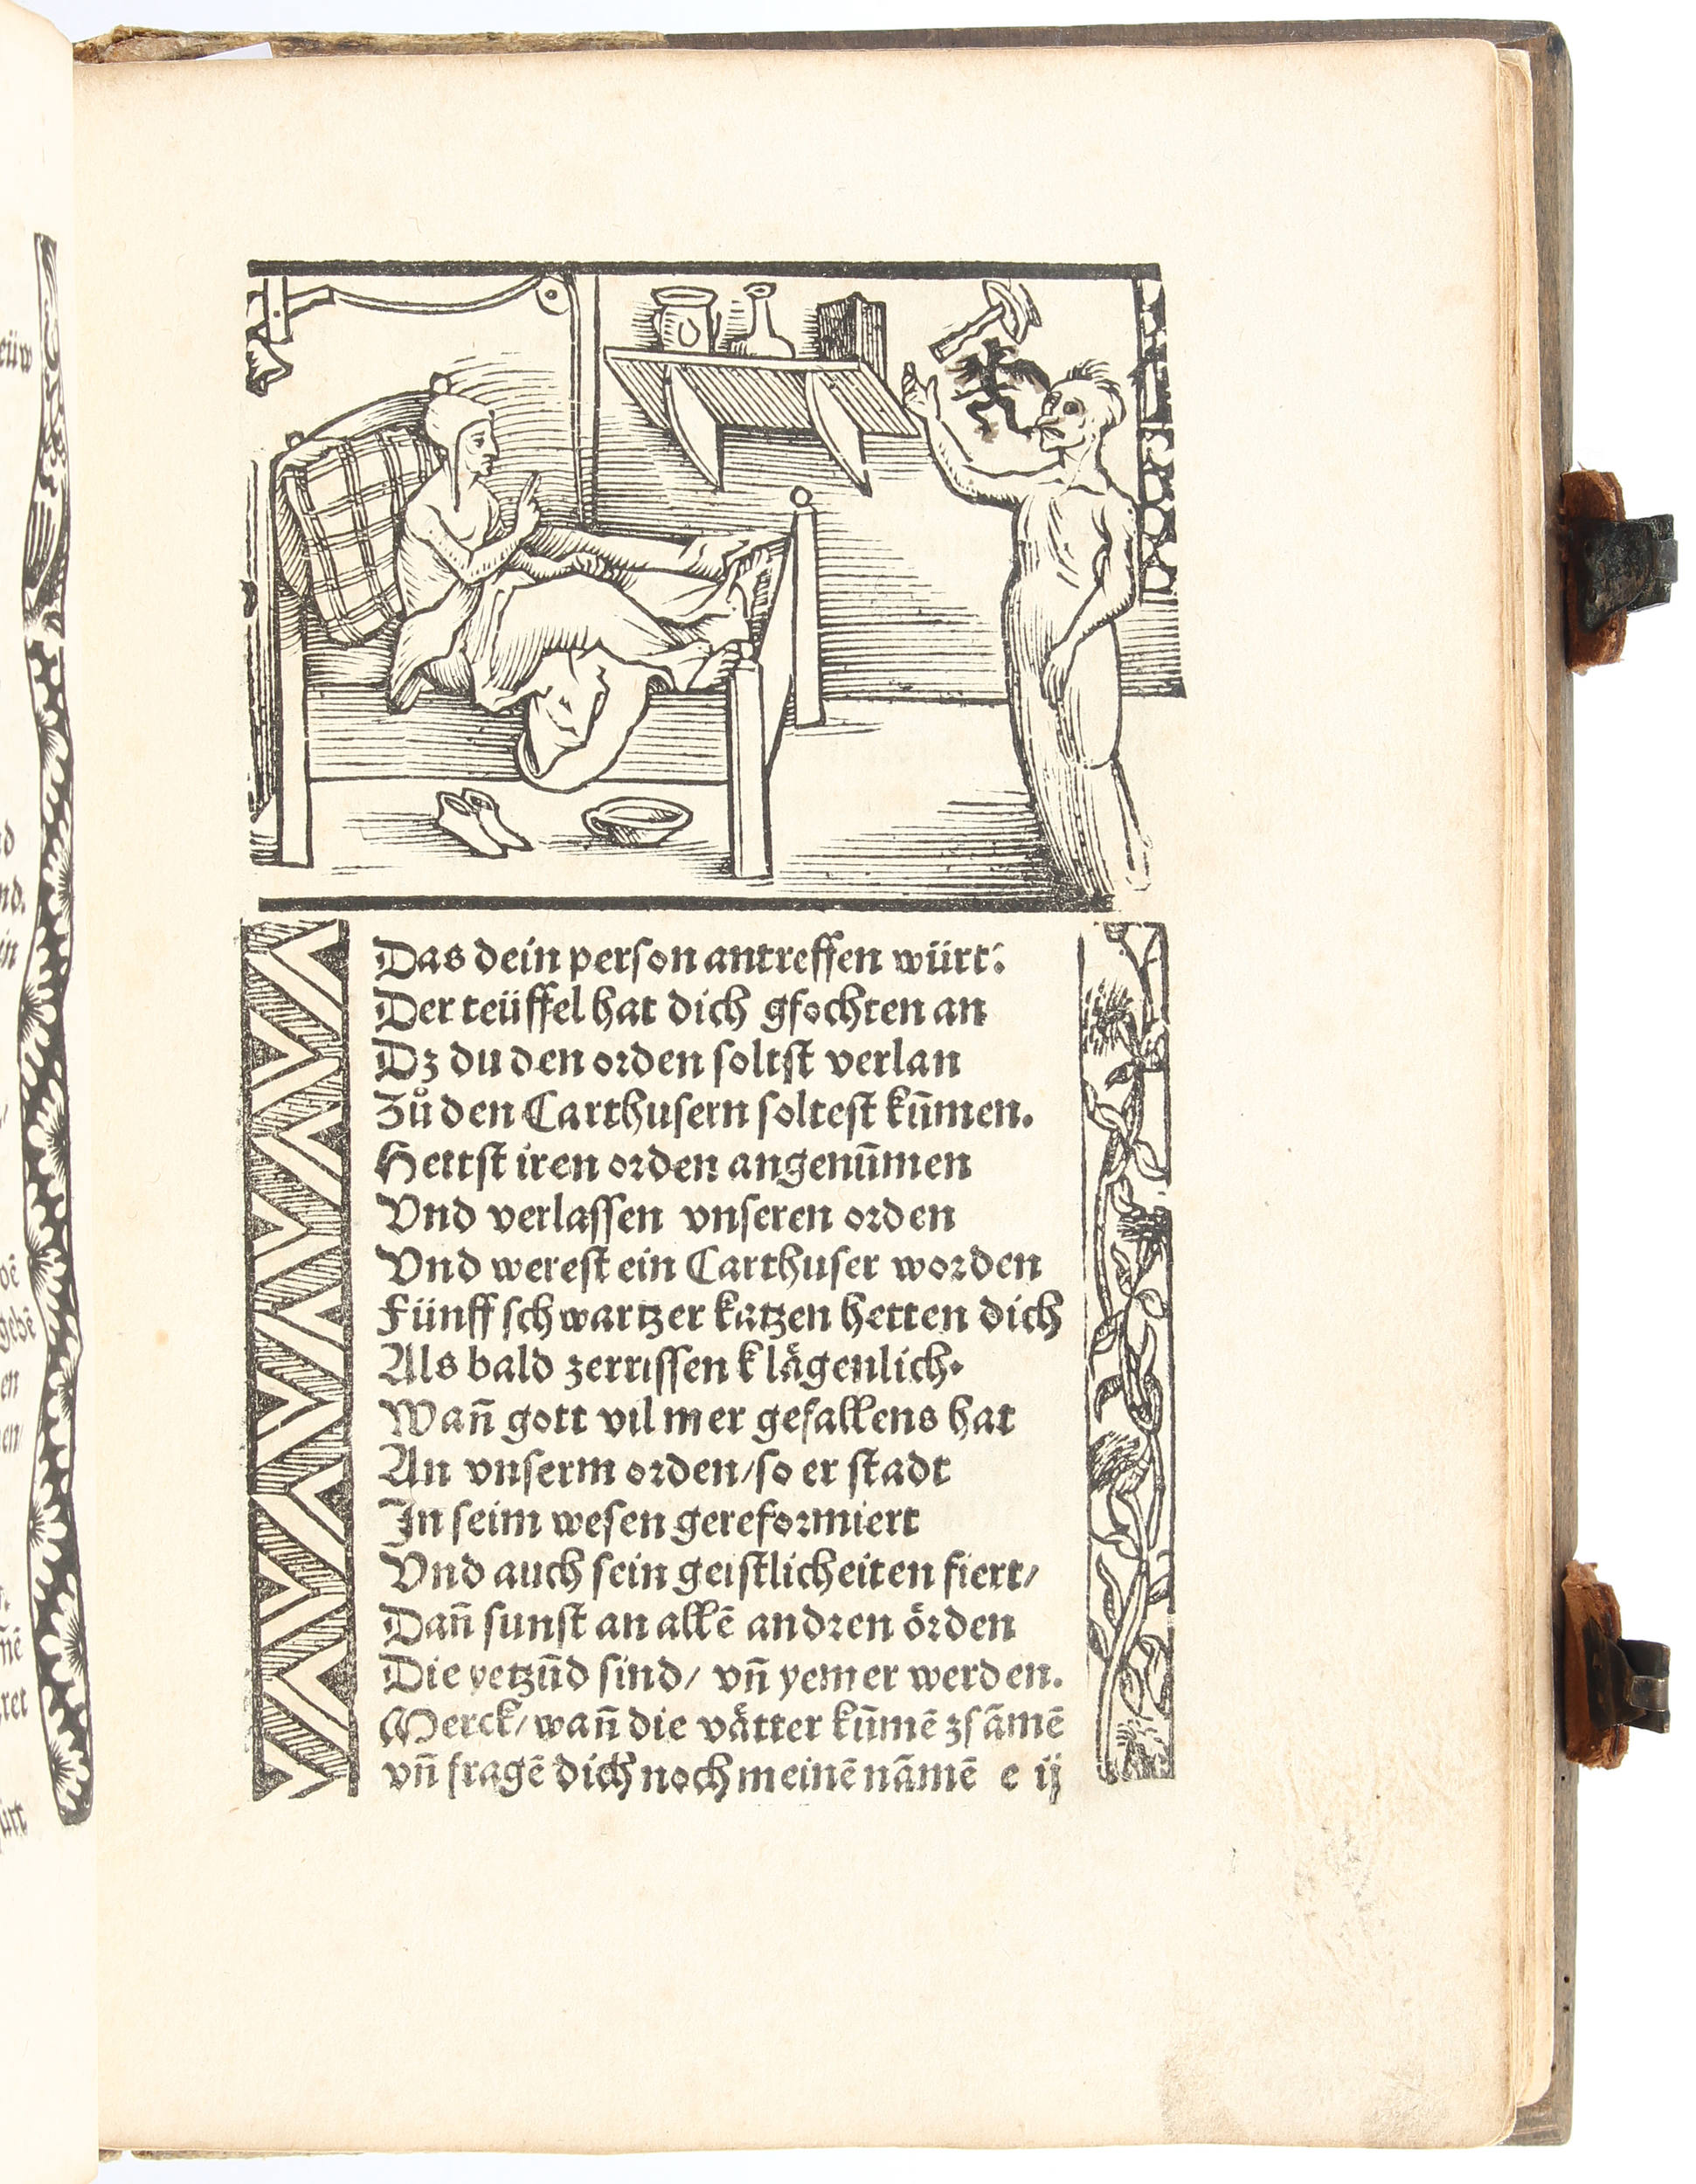 Das dein person antreffen würt:
Der teüffel hat dich gfochten an
Dz du den orden soltst verlan
Zů den Carthusern soltest kūmen.
Hettst iren orden angenūmen
Vnd verlassen vnseren orden
Vnd werest ein Carthuser worden
Fünff schwartzer katzen hetten dich
Als bald zerrissen klägenlich.
Wañ gott vil mer gefallens hat
An vnserm orden/so er stadt
In seim wesen gereformiert
Vnd auch sein geistlicheiten fiert/
Dañ sunst an allē andren örden
Die yetzūd sind/ vñ yemer werden.
Merck/wañ die vätter kūmē zsāmē
vñ fragē dich noch meinē nāmē e ij